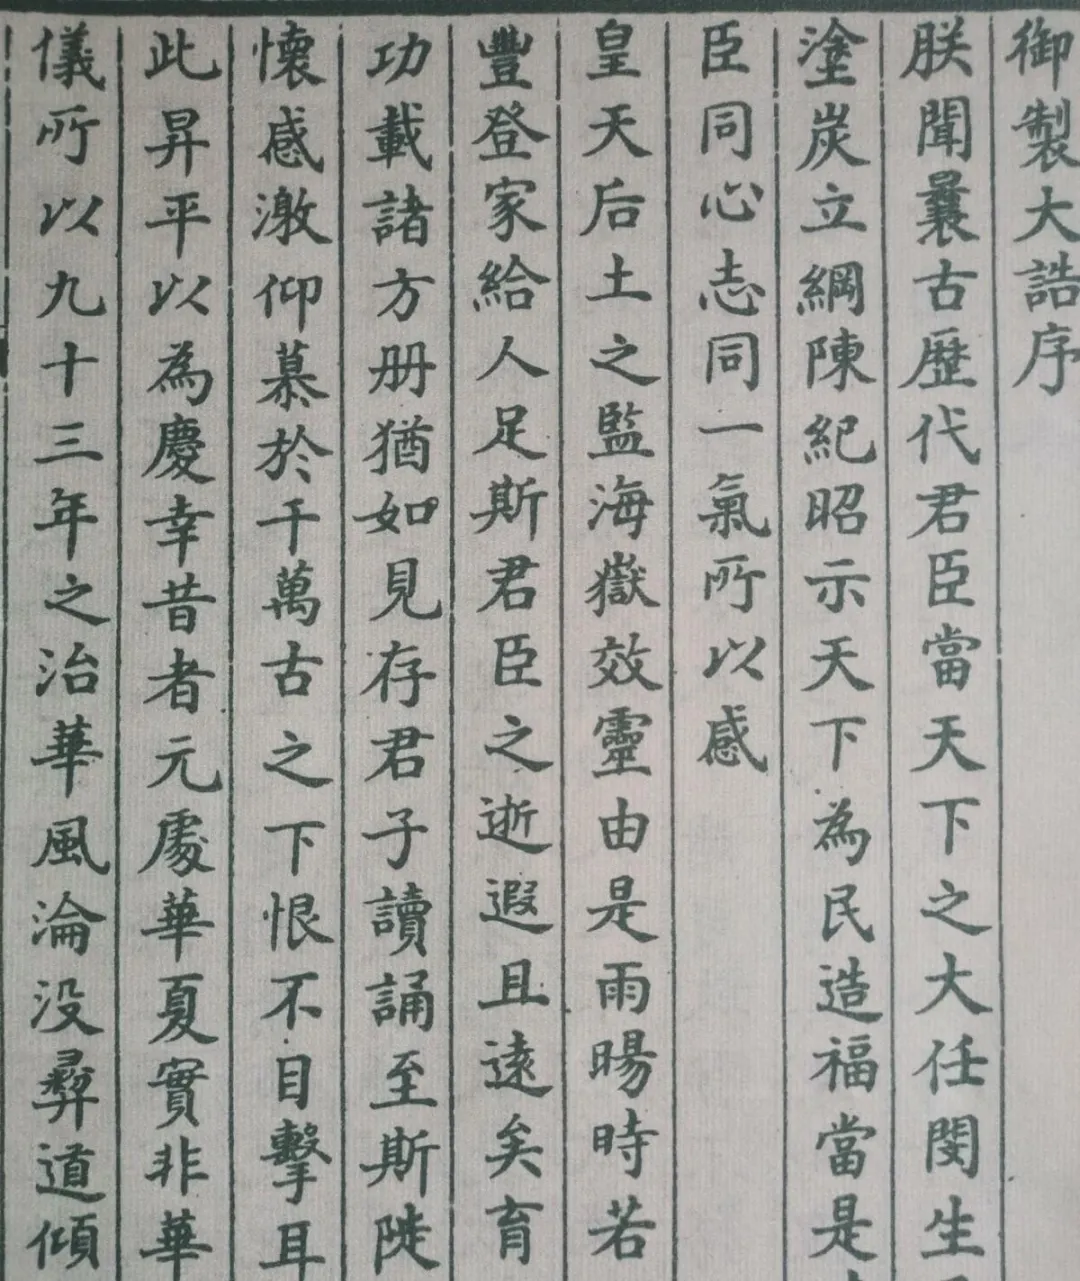 御製大誥序
朕聞曩古歷代君臣當天下之大任閔生
塗炭立綱陳紀昭示天下為民造福當是
臣同心志同一氣所以感
皇天后土之監海嶽效靈由是雨暘時若
豐登家給人足斯君臣之逝遐且遠矣育
功載諸方册猶如見存君子讀誦至斯陡
懷感激仰慕於千萬古之下恨不目擊耳
此昇平以為慶幸昔者元處華夏實非華
儀所以九十三年之治華風淪没彞道傾